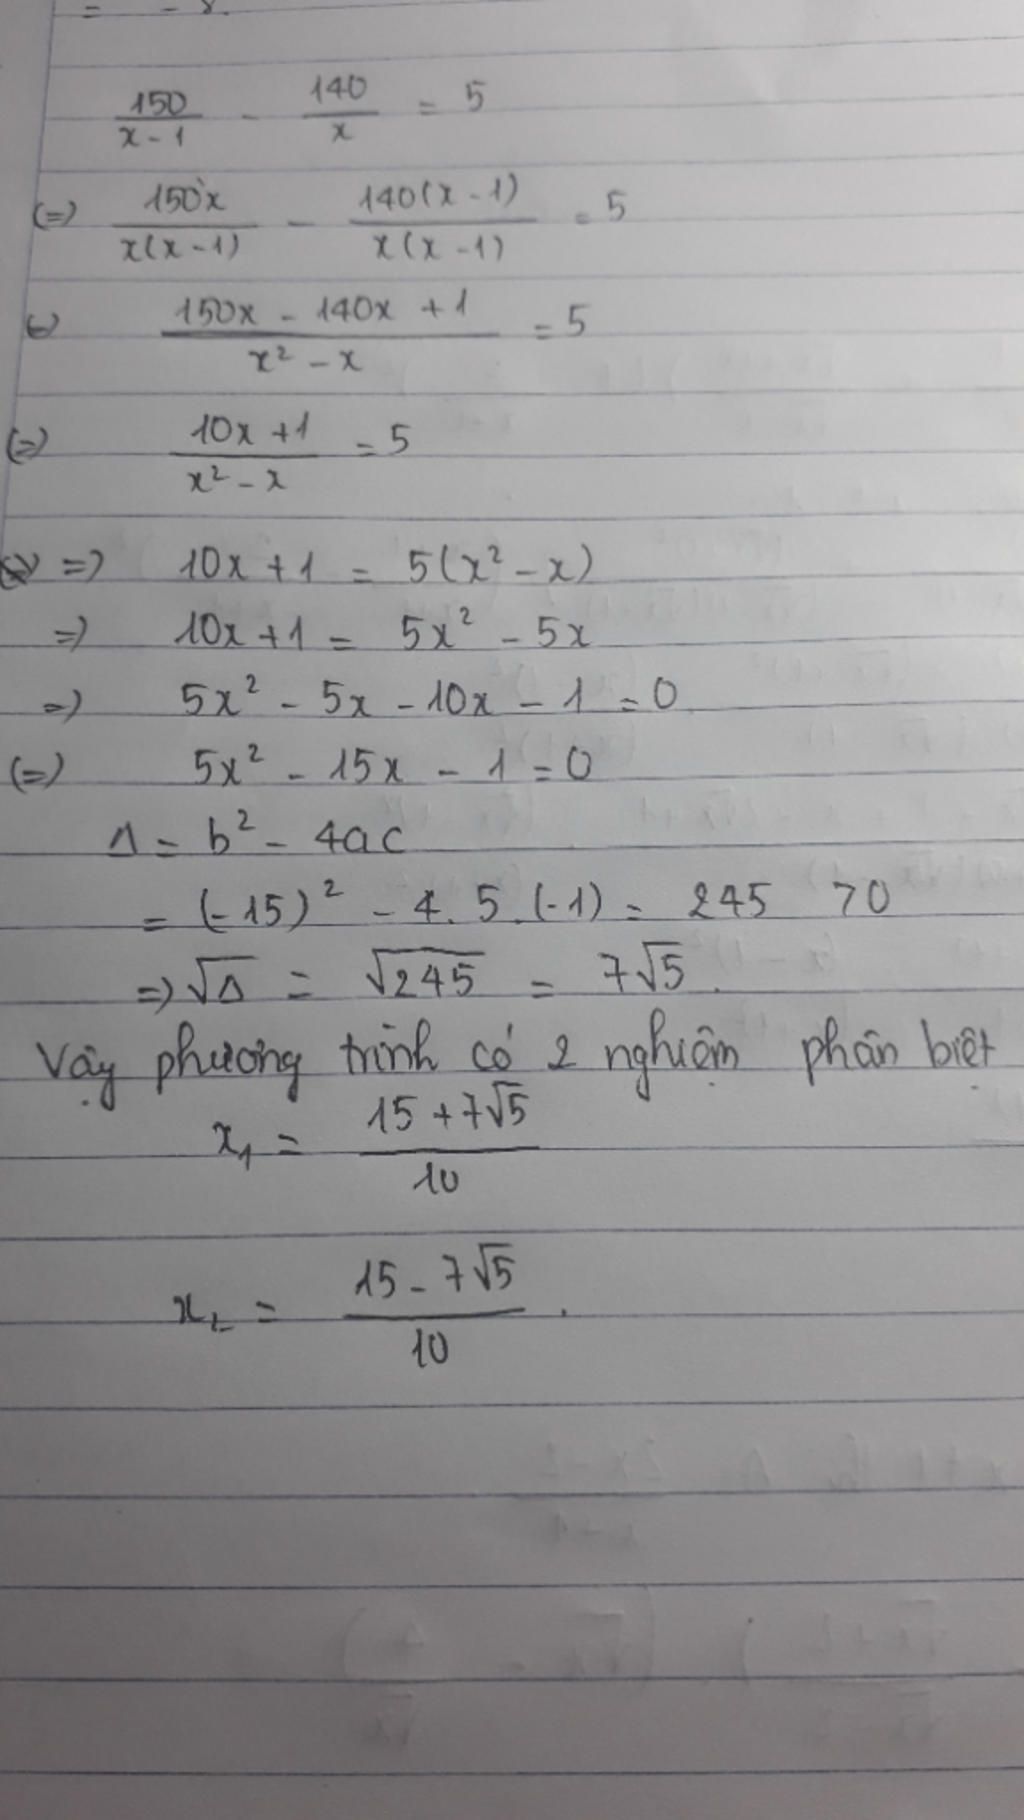 = - 8.
150/(x-1) - 140/x = 5
(=) 150x/(x(x-1)) - 140(x-1)/(x(x-1)) = 5
(=) (150x - 140x + 1)/(x² - x) = 5
(=) (10x + 1)/(x² - x) = 5
=) 10x + 1 = 5(x² - x)
=) 10x + 1 = 5x² - 5x
=) 5x² - 5x - 10x - 1 = 0
(=) 5x² - 15x - 1 = 0
Δ = b² - 4ac
= (-15)² - 4.5.(-1) = 245 >0
=) √Δ = √245 = 7√5.
Vậy phương trình có 2 nghiệm phân biệt
x₁ = (15 + 7√5)/10
x₂ = (15 - 7√5)/10.